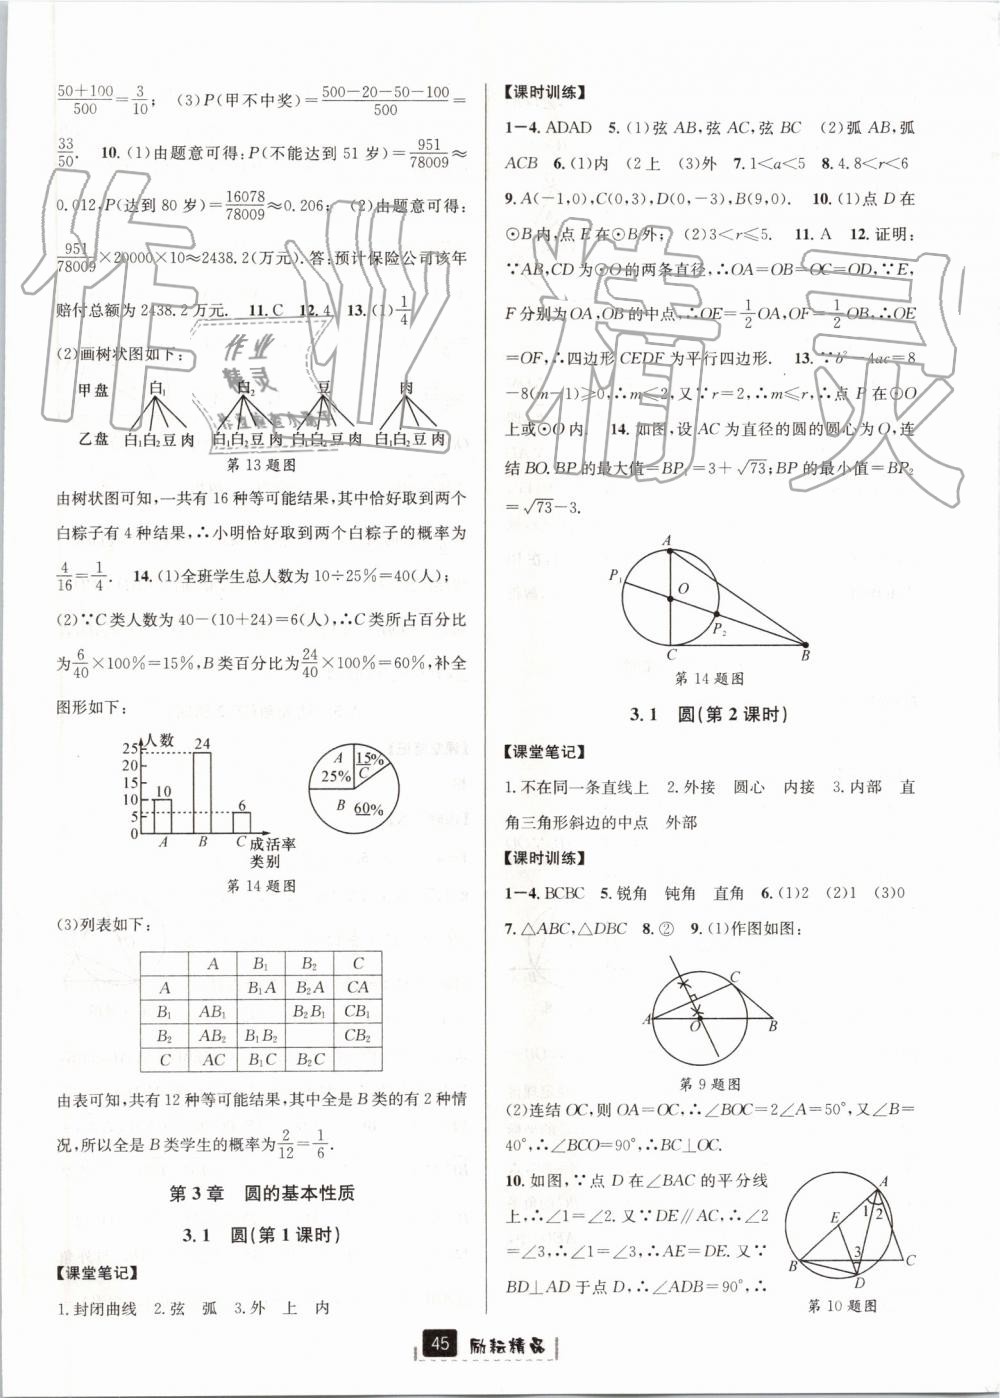 50+100/500=3/10; (3)P(甲不中奖)=500-20-50-100/500=
33/50. 10.(1)由题意可得:P(不能达到51岁)=951/78009≈
0.012,P(达到80岁)=16078/78009≈0.206; (2)由题意可得:
951/78009×20000×10≈2438.2(万元).答:预计保险公司该年
赔付总额为2438.2万元. 11.C 12.4 13.(1)1/4
(2)画树状图如下:
甲盘 白₁ 白₂ 豆 肉
乙盘 白₁白₂豆肉 白₁白₂豆肉 白₁白₂豆肉 白₁白₂豆肉
第13题图
由树状图可知,一共有16种等可能结果,其中恰好取到两个
白粽子有4种结果,∴小明恰好取到两个白粽子的概率为
4/16=1/4. 14.(1)全班学生总人数为10÷25%=40(人);
(2)∵C类人数为40-(10+24)=6(人),∴C类所占百分比
为6/40×100%=15%,B类百分比为24/40×100%=60%,补全
图形如下:
人数
25
20
15
10
5
0
10 24 6
A B C 成活率
类别
A 25%
15% C
B 60%
第14题图
(3)列表如下:
A B₁ B₂ C
A B₁A B₂A CA
B₁ AB₁ B₂B₁ CB₁
B₂ AB₂ B₁B₂ CB₂
C AC B₁C B₂C
由表可知,共有12种等可能结果,其中全是B类的有2种情
况,所以全是B类学生的概率为2/12=1/6.
第3章 圆的基本性质
3.1 圆(第1课时)
【课堂笔记】
1.封闭曲线 2.弦 弧 3.外 上 内
【课时训练】
1-4.ADAD 5.(1)弦AB,弦AC,弦BC (2)弧AB,弧
ACB 6.(1)内 (2上 (3)外 7.1<a<5 8.4.8<r<6
9.A(-1,0),C(0,3),D(0,-3),B(9,0). 10.(1)点D在
⊙B内,点E在⊙B外; (2)3<r≤5. 11.A 12.证明:
∵AB,CD为⊙O的两条直径,∴OA=OB=OC=OD,∵E,
F分别为OA,OB的中点,∴OE=1/2OA,OF=1/2OB,∴OE
=OF,∴四边形CEDF为平行四边形. 13.∵b²-4ac=8
-8(m-1)≥0,∴m≤2,又∵r=2,∴m≤r,∴点P在⊙O
上或⊙O内. 14.如图,设AC为直径的圆的圆心为O,连
结BO.BP的最大值=BP₁=3+√73;BP的最小值=BP₂
=√73-3.
A
P₁
O
P₂
C B
第14题图
3.1 圆(第2课时)
【课堂笔记】
1.不在同一条直线上 2.外接 圆心 内接 3.内部 直
角三角形斜边的中点 外部
【课时训练】
1-4.BCBC 5.锐角 钝角 直角 6.(1)2 (2)1 (3)0
7.△ABC,△DBC 8.② 9.(1)作图如图:
C
A O B
第9题图
(2)连结OC,则OA=OC,∴∠BOC=2∠A=50°,又∠B=
40°,∴∠BCO=90°,∴BC⊥OC.
10.如图,∵点D在∠BAC的平分线
上,∴∠1=∠2.又∵DE∥AC,∴∠2
=∠3,∴∠1=∠3,∴AE=DE.又∵
BD⊥AD于点D,∴∠ADB=90°,∴
A
1 2
E
3
B C
D
第10题图
45 励耘精品
作业精灵
作业
精灵